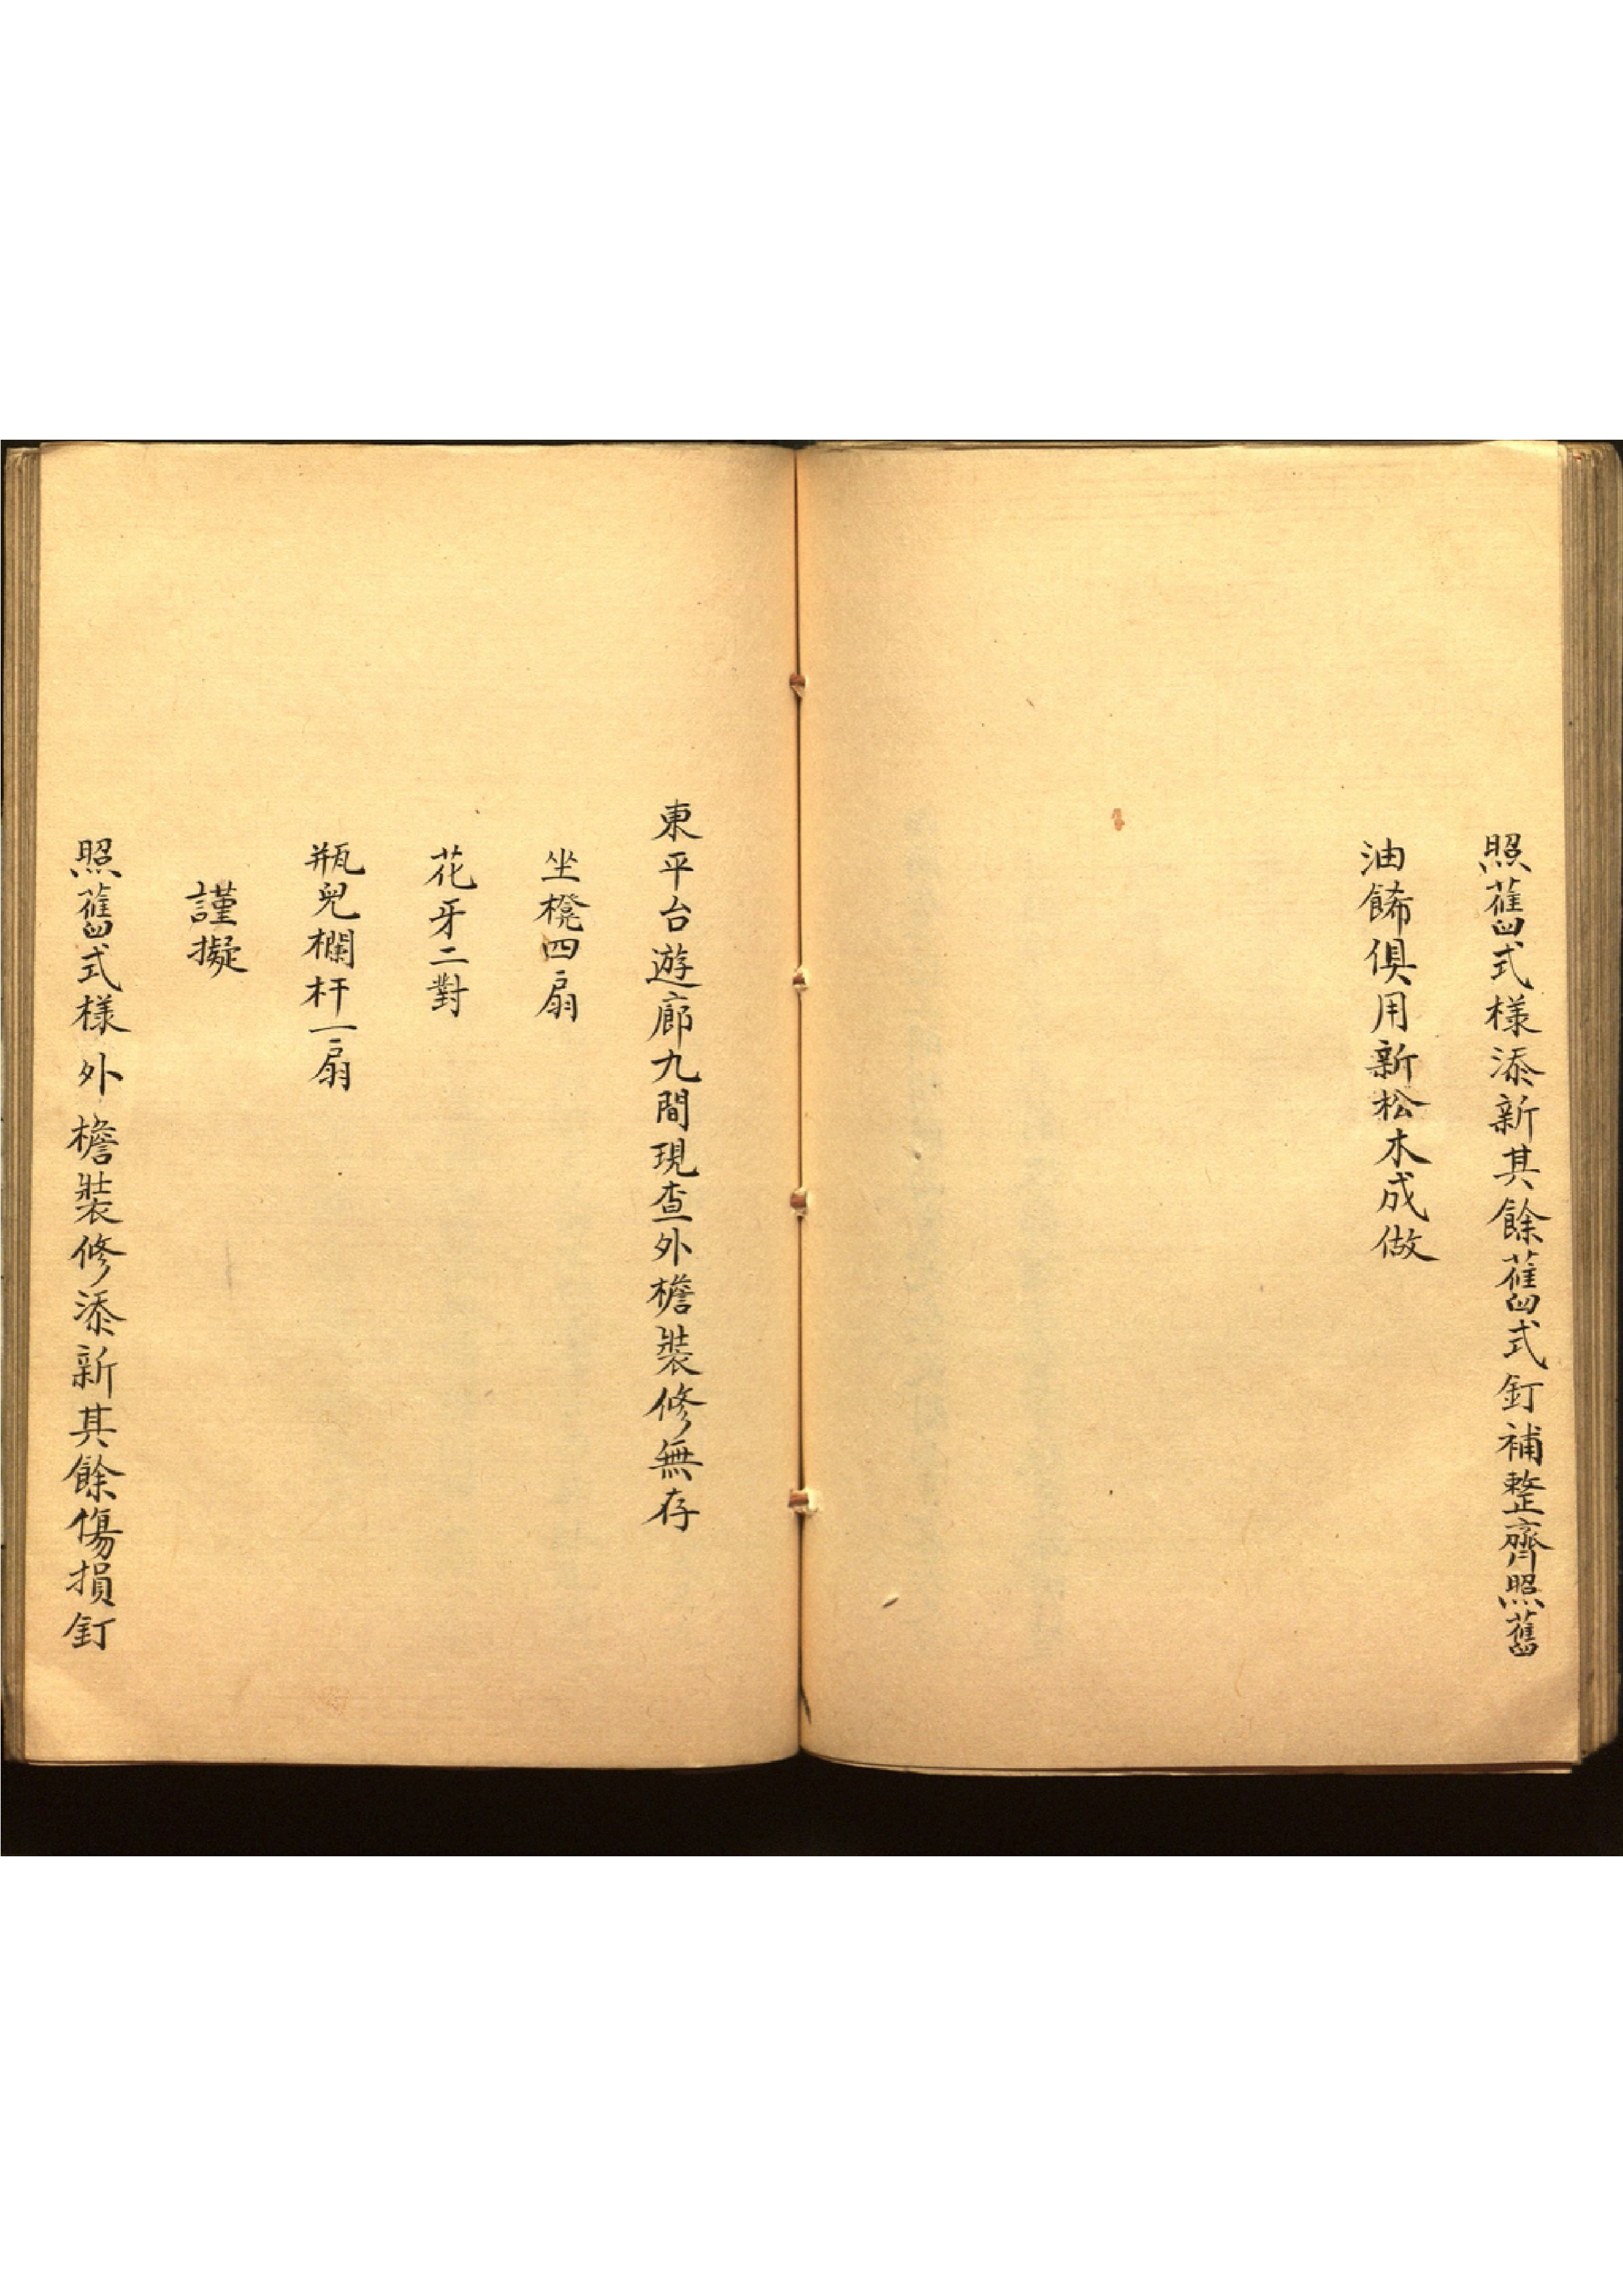 照舊式樣添新其餘舊式釘補整齊照舊
油餙俱用新松木成做
東平台遊廊九間現查外檐裝修無存
坐櫈四扇
花牙二對
瓶兒欄杆一扇
謹擬
照舊式樣外檐裝修添新其餘傷損釘